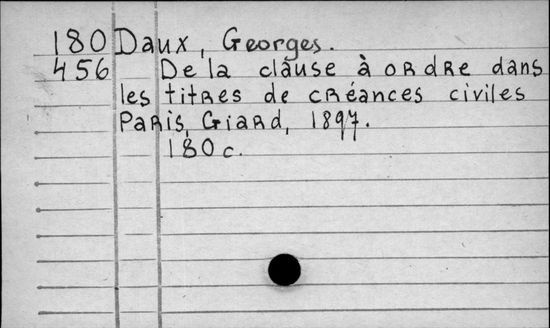 180 Daux, Georges.
456 De la clause à ordre dans
les titres de créances civiles
Paris, Giard, 1897.
180 c.